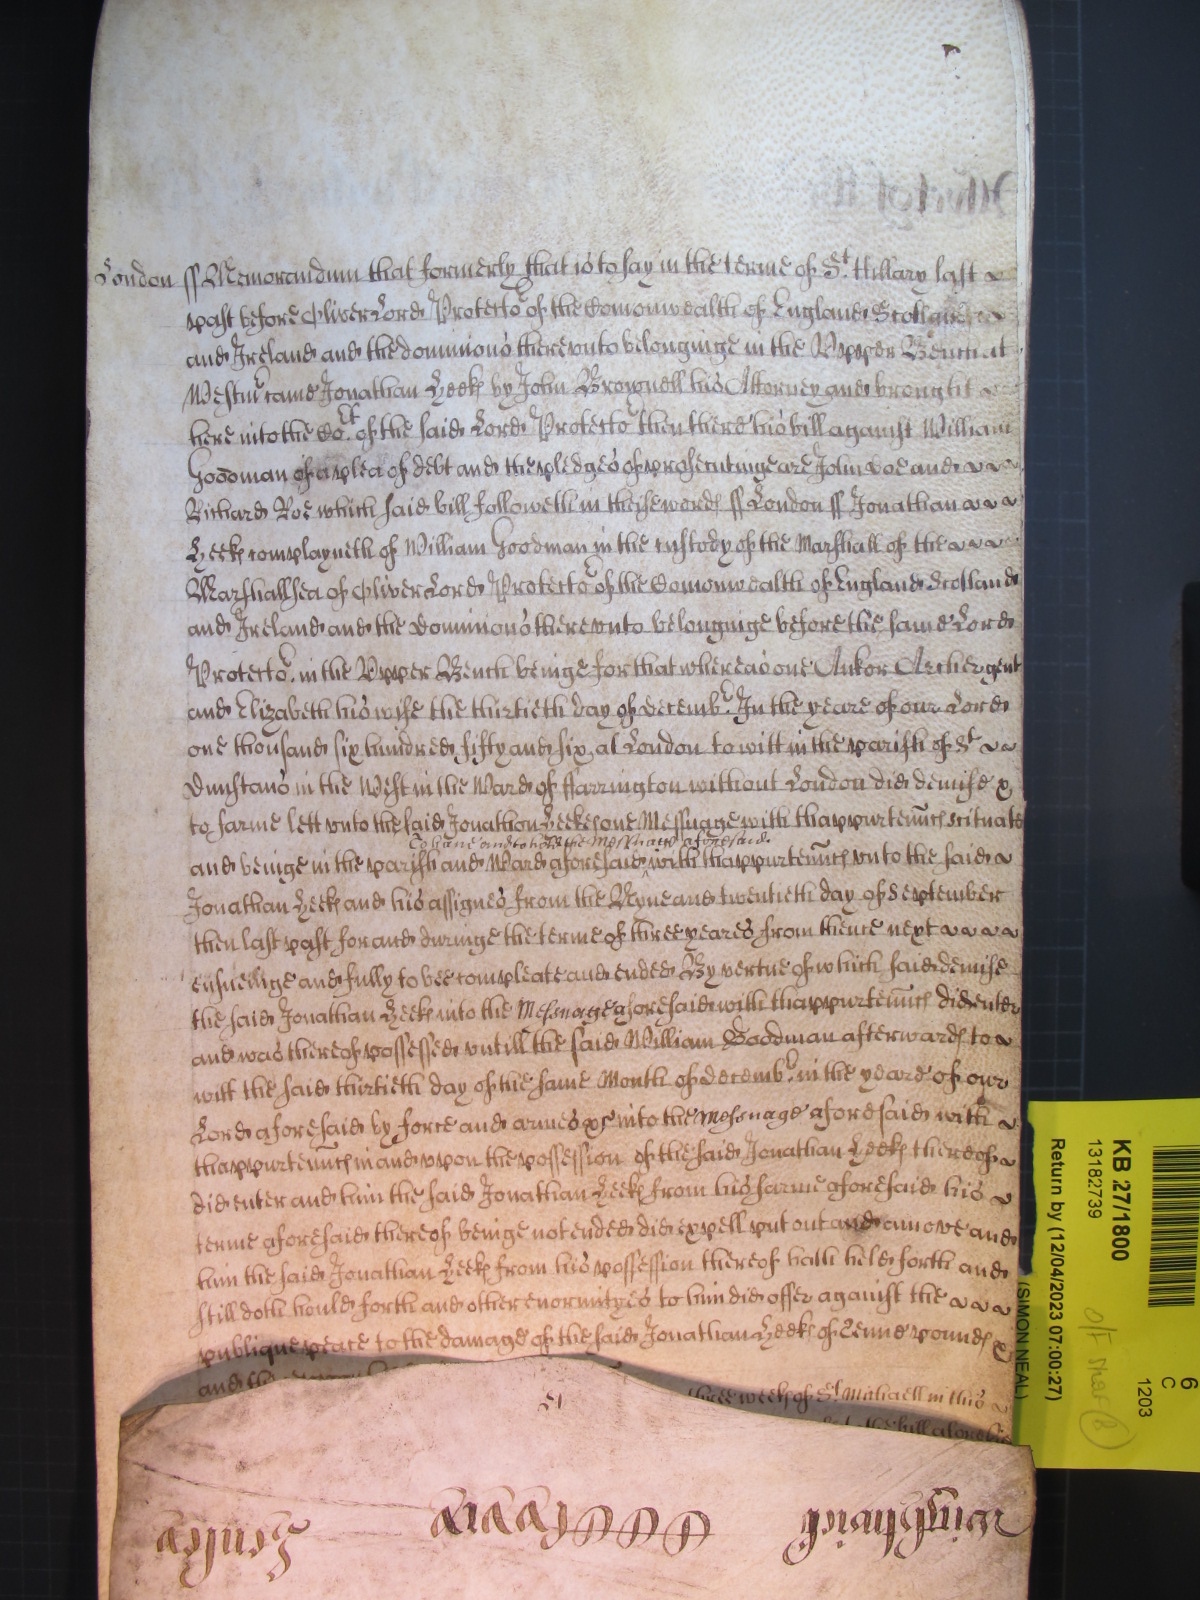 London ss Memorandum that formerly that is to say in the terme of St. Hillary last
past before Oliver Lord Protector of the Comonwealth of England Scotland
and Ireland and the dominions thereunto belonginge in the Upper Bench at
Westmr came Jonathan Leeke by John Brownell his Attorney and brought
here into the Cort. of the said Lord Protector then there his bill against William
Goodman of a plea of debt and the pledges of prosecutinge are John doe and
Richard Roe which said bill followeth in these words ss London ss Jonathan
Leeke complayneth of William Goodman in the custody of the Marshall of the
Marshallsea of Oliver Lord Protector of the Comonwealth of England Scotland
and Ireland and the dominions thereunto belonginge before the same Lord
Protector. in the Upper Bench beinge for that whereas one Ankor Archer gent
and Elizabeth his wife the thirtieth day of decembr. In the yeare of our Lord
one thousand six hundred fifty and six at London to witt in the parish of St
Dunstans in the West in the Ward of ffarrington without London did demise &
to farme lett unto the said Jonathan Leeke one Messuage with thappurtenncs scituate
To have and to hold the Messuage aforesaid
and beinge in the parish and Ward aforesaid with thappurtenncs unto the said
Jonathan Leeke and his assignes from the Nyne and twentieth day of September
then last past for and duringe the terme of three yeares from thence next
ensueinge and fully to bee compleate and ended By vertue of which said demise
the said Jonathan Leeke into the Messuage aforesaid with thappurtenncs did enter
and was thereof possessed untill the said William Goodman afterwards to
witt the said thirtieth day of the same Month of decembr. in the yeare of our
Lord aforesaid by force and armes &c into the Messuage aforesaid with
thappurtenncs in and upon the possession of the said Jonathan Leeke thereof
did enter and him the said Jonathan Leeke from his farme aforesaid his
terme aforesaid thereof beinge not ended did expell put out and amove and
him the said Jonathan Leeke from his possession thereof hath held forth and
still doth hould forth and other enormityes to him did offer against the
publique peace to the damage of the said Jonathan Leeke of Tenne pounds &
and
three weeks of St. Michaell in this
the bill aforesaid
KB 27/1800
13182739
Return by (12/04/2023 07:00:27)
(SIMON NEAL)
6
C
1203